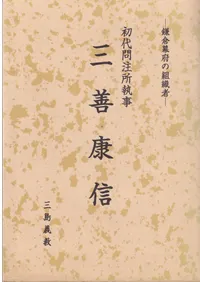 ―鎌倉幕府の組織者―
初代問注所執事
三善康信
三島義教